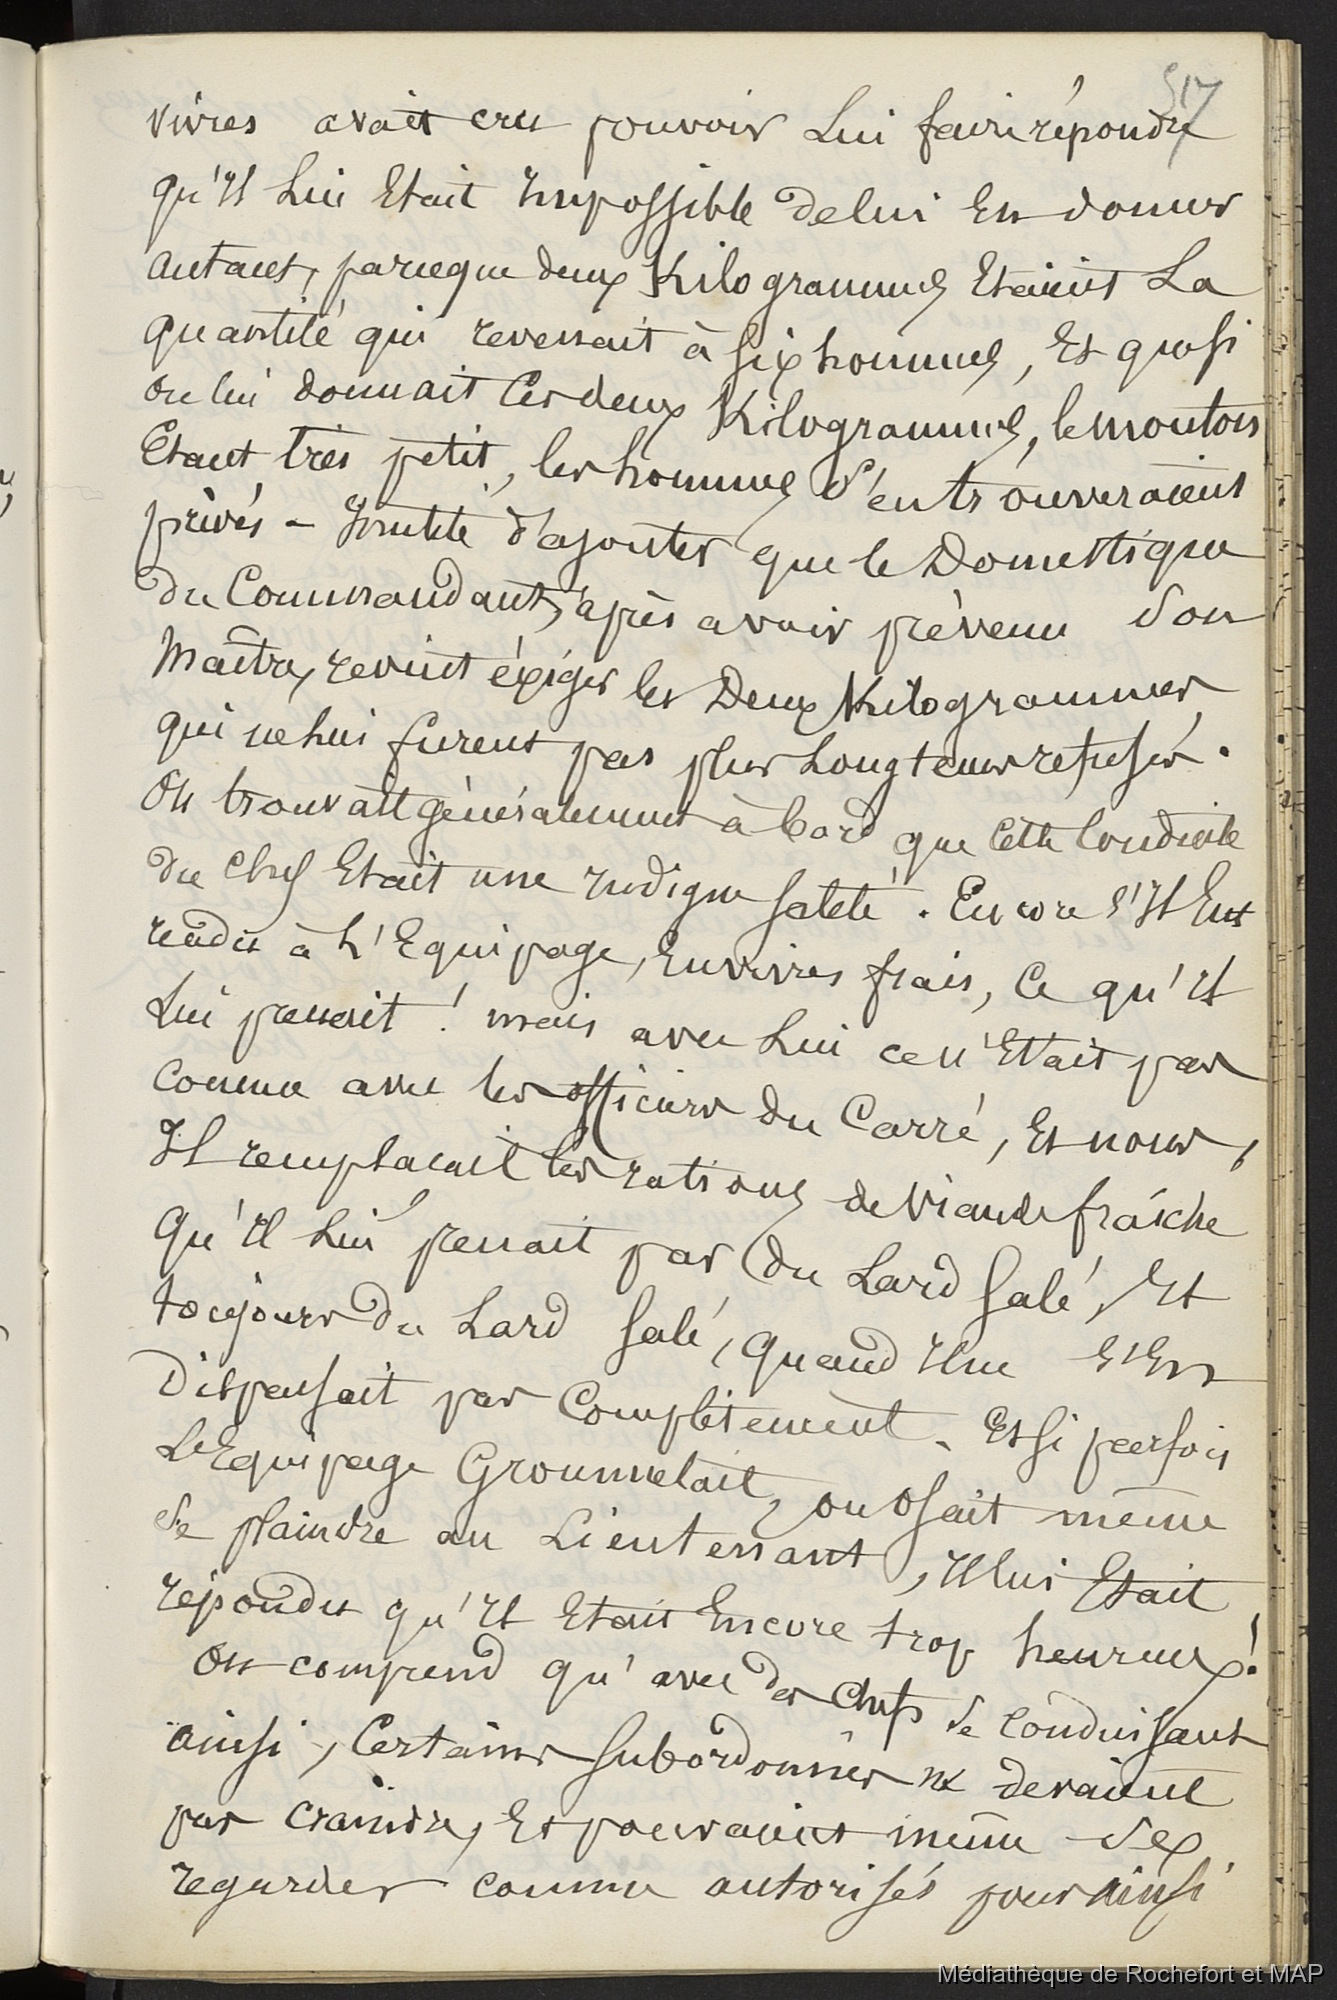 517
vivres avait cru pouvoir Lui faire répondre
qu'Il Lui Etait Impossible de lui En donner
autant, parceque deux Kilogrammes Etaient La
quantité qui revenait à six hommes, Et que si
on lui donnait Ces deux Kilogrammes, le mouton
Etant très petit, les hommes S'en trouveraient
privés - Inutile d'ajouter que le Domestique
du Commandant, après avoir prévenu Son
Maître, revint éxiger les Deux Kilogrammes
qui ne lui furent pas plus Longtems refusés.
On trouvait généralement à bord que Cette Conduite
du Chef Etait une Indigne saleté. Encore s'Il Eut
rendu à L'Equipage, En vivres frais, Ce qu'Il
Lui prenait ! mais avec Lui ce n'Etait pas
Comme avec les officiers du Carré, Et nous,
Il remplacait les rations de Viande fraîche
qu'Il Lui prenait par du Lard Salé, Et
toujours du Lard Salé, quand Il ne S'En
Dispensait pas Complètement. Et si parfois
L'Equipage Grommelait, ou osait même
Se plaindre au Lieutenant, Il lui Etait
répondu qu'Il Etait Encore trop heureux!
On comprend qu'avec des Chefs se Conduisant
ainsi, Certains Subordonnés ne devaient
pas craindre, Et pouvaient même Se
regarder comme autorisés pour ainsi
Médiathèque de Rochefort et MAP